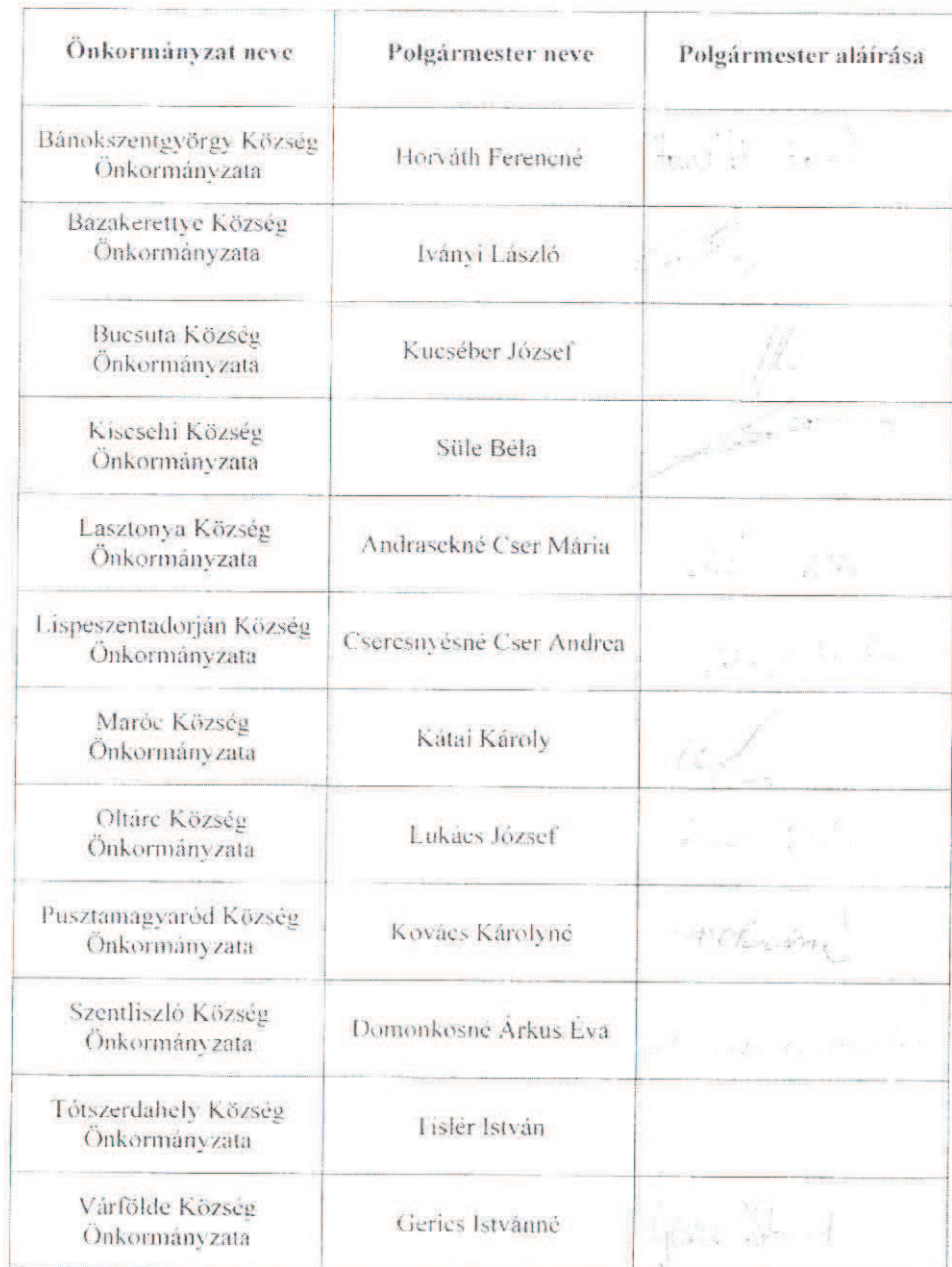 Önkormányzat neve
Polgármester neve
Polgármester aláírása
Bánokszentgyörgy Község
Önkormányzata
Horváth Ferencné
Bázakerettye Község
Önkormányzata
Iványi László
Bucsuta Község
Önkormányzata
Kucséber József
Kiscsehi Község
Önkormányzata
Süle Béla
Lasztonya Község
Önkormányzata
Andrasekné Cser Mária
Lispeszentadorján Község
Önkormányzata
Cseresnyésné Cser Andrea
Maróc Község
Önkormányzata
Kátai Károly
Oltárc Község
Önkormányzata
Lukács József
Pusztamagyaród Község
Önkormányzata
Kovács Károlyné
Szentliszló Község
Önkormányzata
Domonkosné Árkus Éva
Tótszerdahely Község
Önkormányzata
Tislér István
Várfölde Község
Önkormányzata
Gerics Istvánné